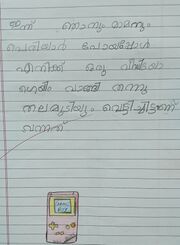 ഇന്ന് ഞാനും രാമനും
പെരിയാർ പോയപ്പോൾ
എനിക്ക് ഒരു വീഡിയോ
ഗെയിം വാങ്ങി തന്നു
തലമുടിയും വെട്ടിച്ചിട്ടാണ്
വന്നത്